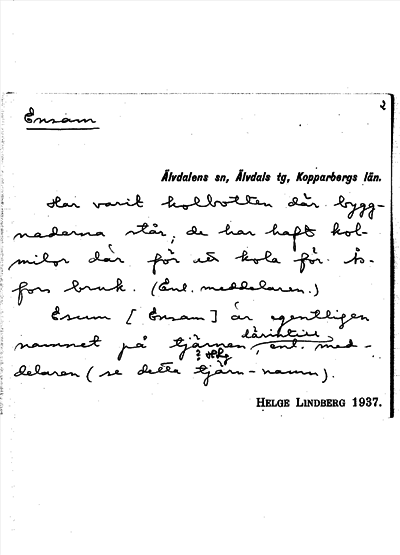 2
Ensam
Älvdalens sn, Älvdals tg, Kopparbergs län.
Har varit kolbotten där bygg-
naderna står; de har haft kol-
milor där för att kola för Ås-
fors bruk. (Enl. meddelaren.)
Esum [Ensam] är egentligen
namnet på tjärnen, enl. med-
delaren (se detta tjärn-namn).
HELGE LINDBERG 1937.